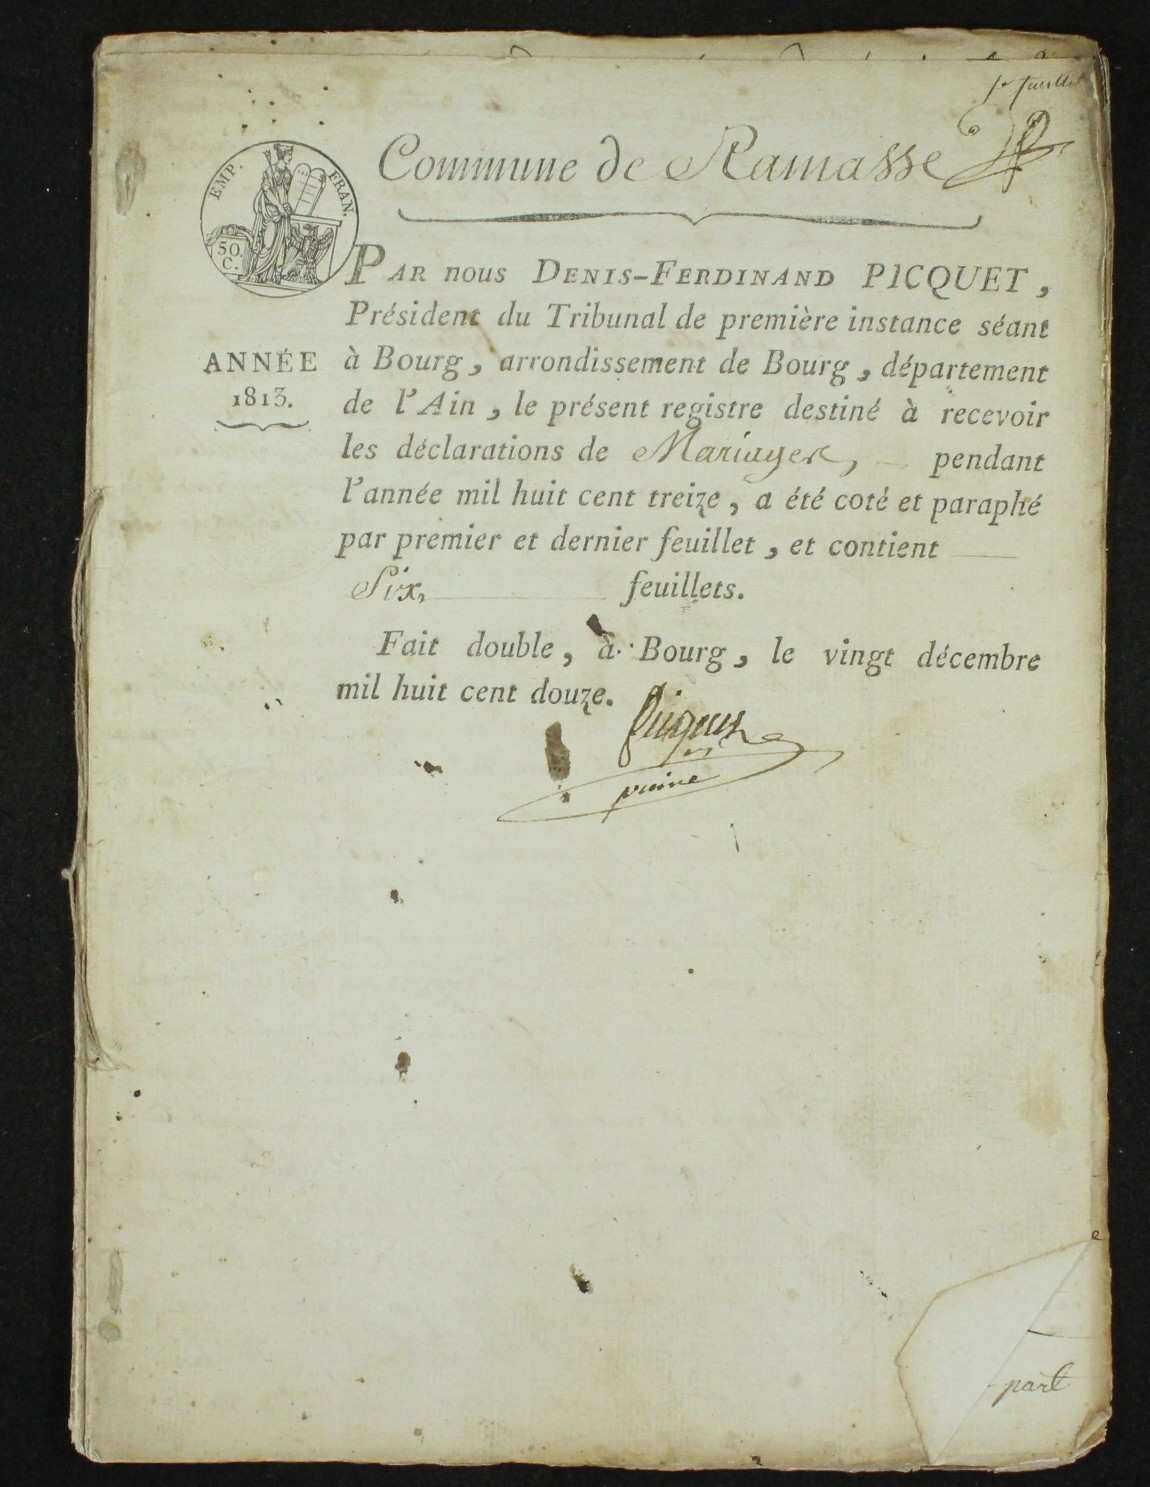 1er feuillet
Commune de Ramasse
EMP. FRAN.
50.
C.
PAR nous DENIS-FERDINAND PICQUET,
Président du Tribunal de première instance séant
ANNÉE
1813.
à Bourg, arrondissement de Bourg, département
de l'Ain, le présent registre destiné à recevoir
les déclarations de Mariages, pendant
l'année mil huit cent treize, a été coté et paraphé
par premier et dernier feuillet, et contient
Six, feuillets.
Fait double, à Bourg, le vingt décembre
mil huit cent douze.
part